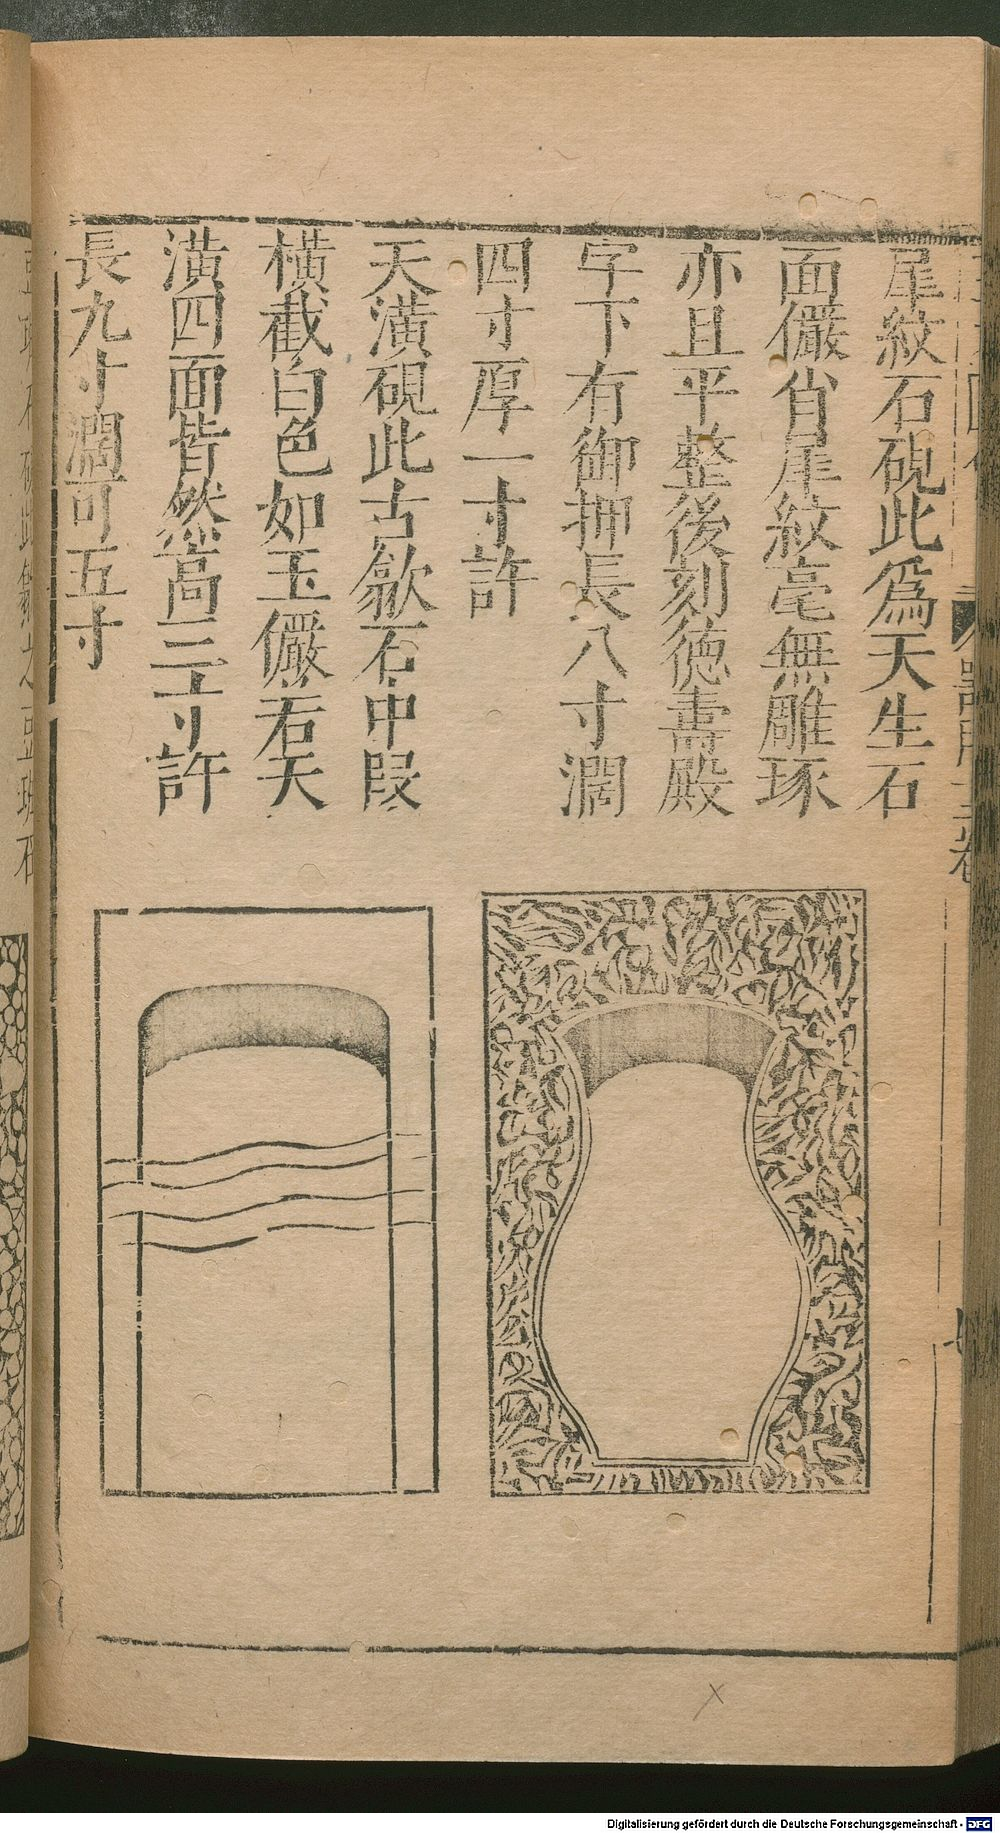 犀紋石硯此爲天生石
面儼肖犀紋毫無雕琢
亦且平整後刻徳壽殿
字下有御押長八寸濶
四寸厚一寸許
天潢硯此古歙石中段
橫截白色如玉儼若天
潢四面皆然高三寸許
長九寸濶可五寸
Digitalisierung gefördert durch die Deutsche Forschungsgemeinschaft - DFG